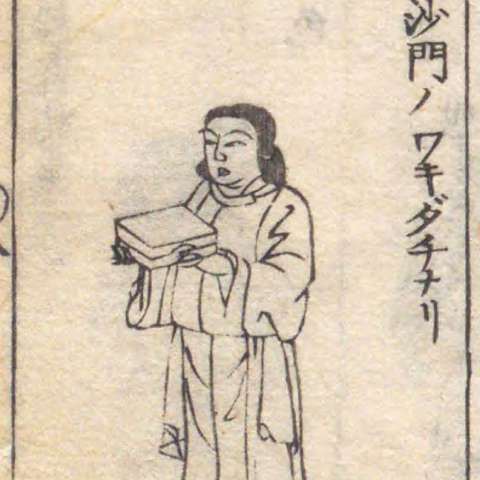 沙門ノワキダチナリ